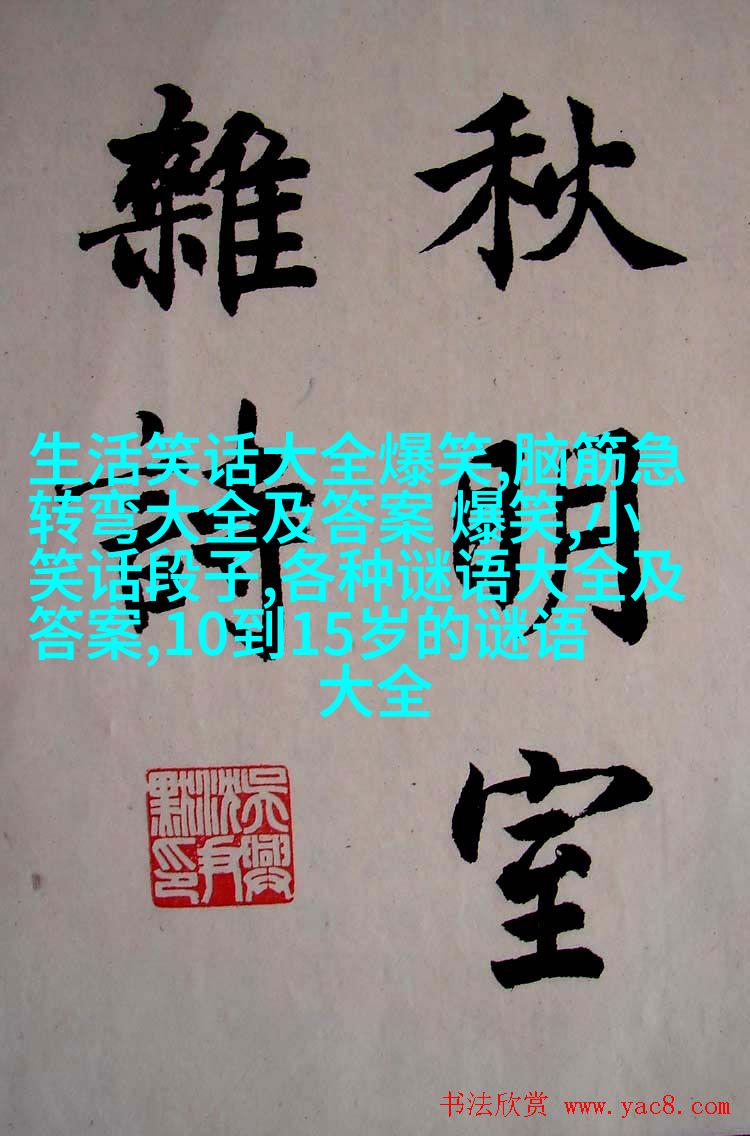 秋明室
雜詩
生活笑话大全爆笑,脑筋急
转弯大全及答案 爆笑,小
笑话段子,各种谜语大全及
答案,10到15岁的谜语
大全
吳興
沈尹
默印
书法欣赏 www.yac8.com